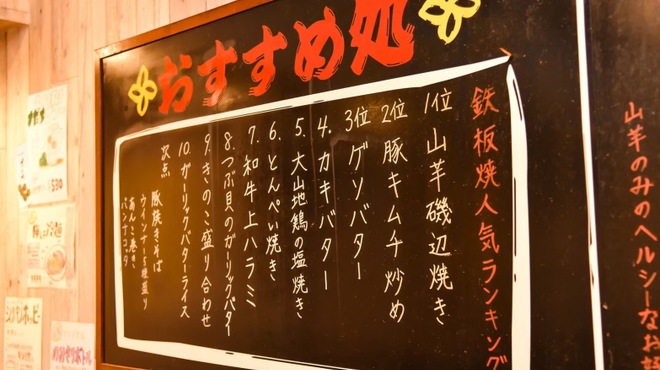 おすすめ処
鉄板焼人気ランキング
1位 山芋磯辺焼き
2位 豚キムチ炒め
3位 ゲソバター
4. カキバター
5. 大山地鶏の塩焼き
6. とんぺい焼き
7. 和牛上ハラミ
8. つぶ貝のガーリックバター
9. きのこ盛り合わせ
10. ガーリックバターライス
次点
豚焼きそば
ウインナー5種盛り
あんこ巻き
パンナコッタ
山芋のみのヘルシーなお好